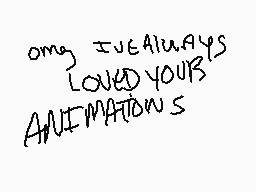 omg IVE AlWAYS
LOVED YOUR
ANIMATIONS